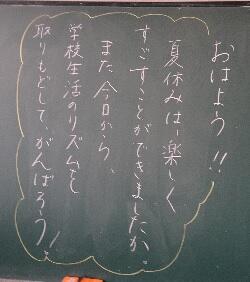 おはよう!!
夏休みは、楽しく
すごすことができましたか。
また今日から、
学校生活のリズムを
取りもどして、がんばろう!